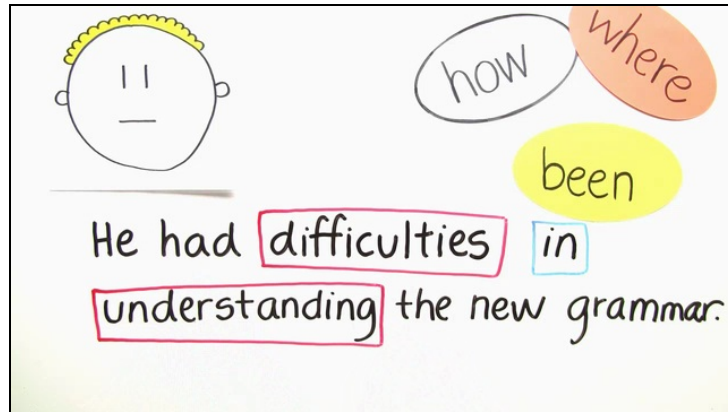 how
where
been
He had difficulties in
understanding the new grammar.